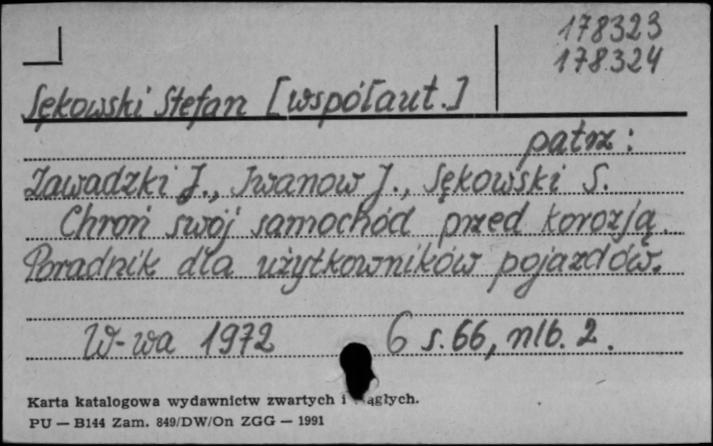 178323
178324
Sękowski Stefan [współaut.]
patrz:
Zawadzki J., Iwanow J., Sękowski S.
Chroń swój samochód przed korozją.
Poradnik dla użytkowników pojazdów.
W-wa 1972 6 s. 66, nlb. 2.
Karta katalogowa wydawnictw zwartych i ciągłych.
PU — B144 Zam. 849/DW/On ZGG — 1991